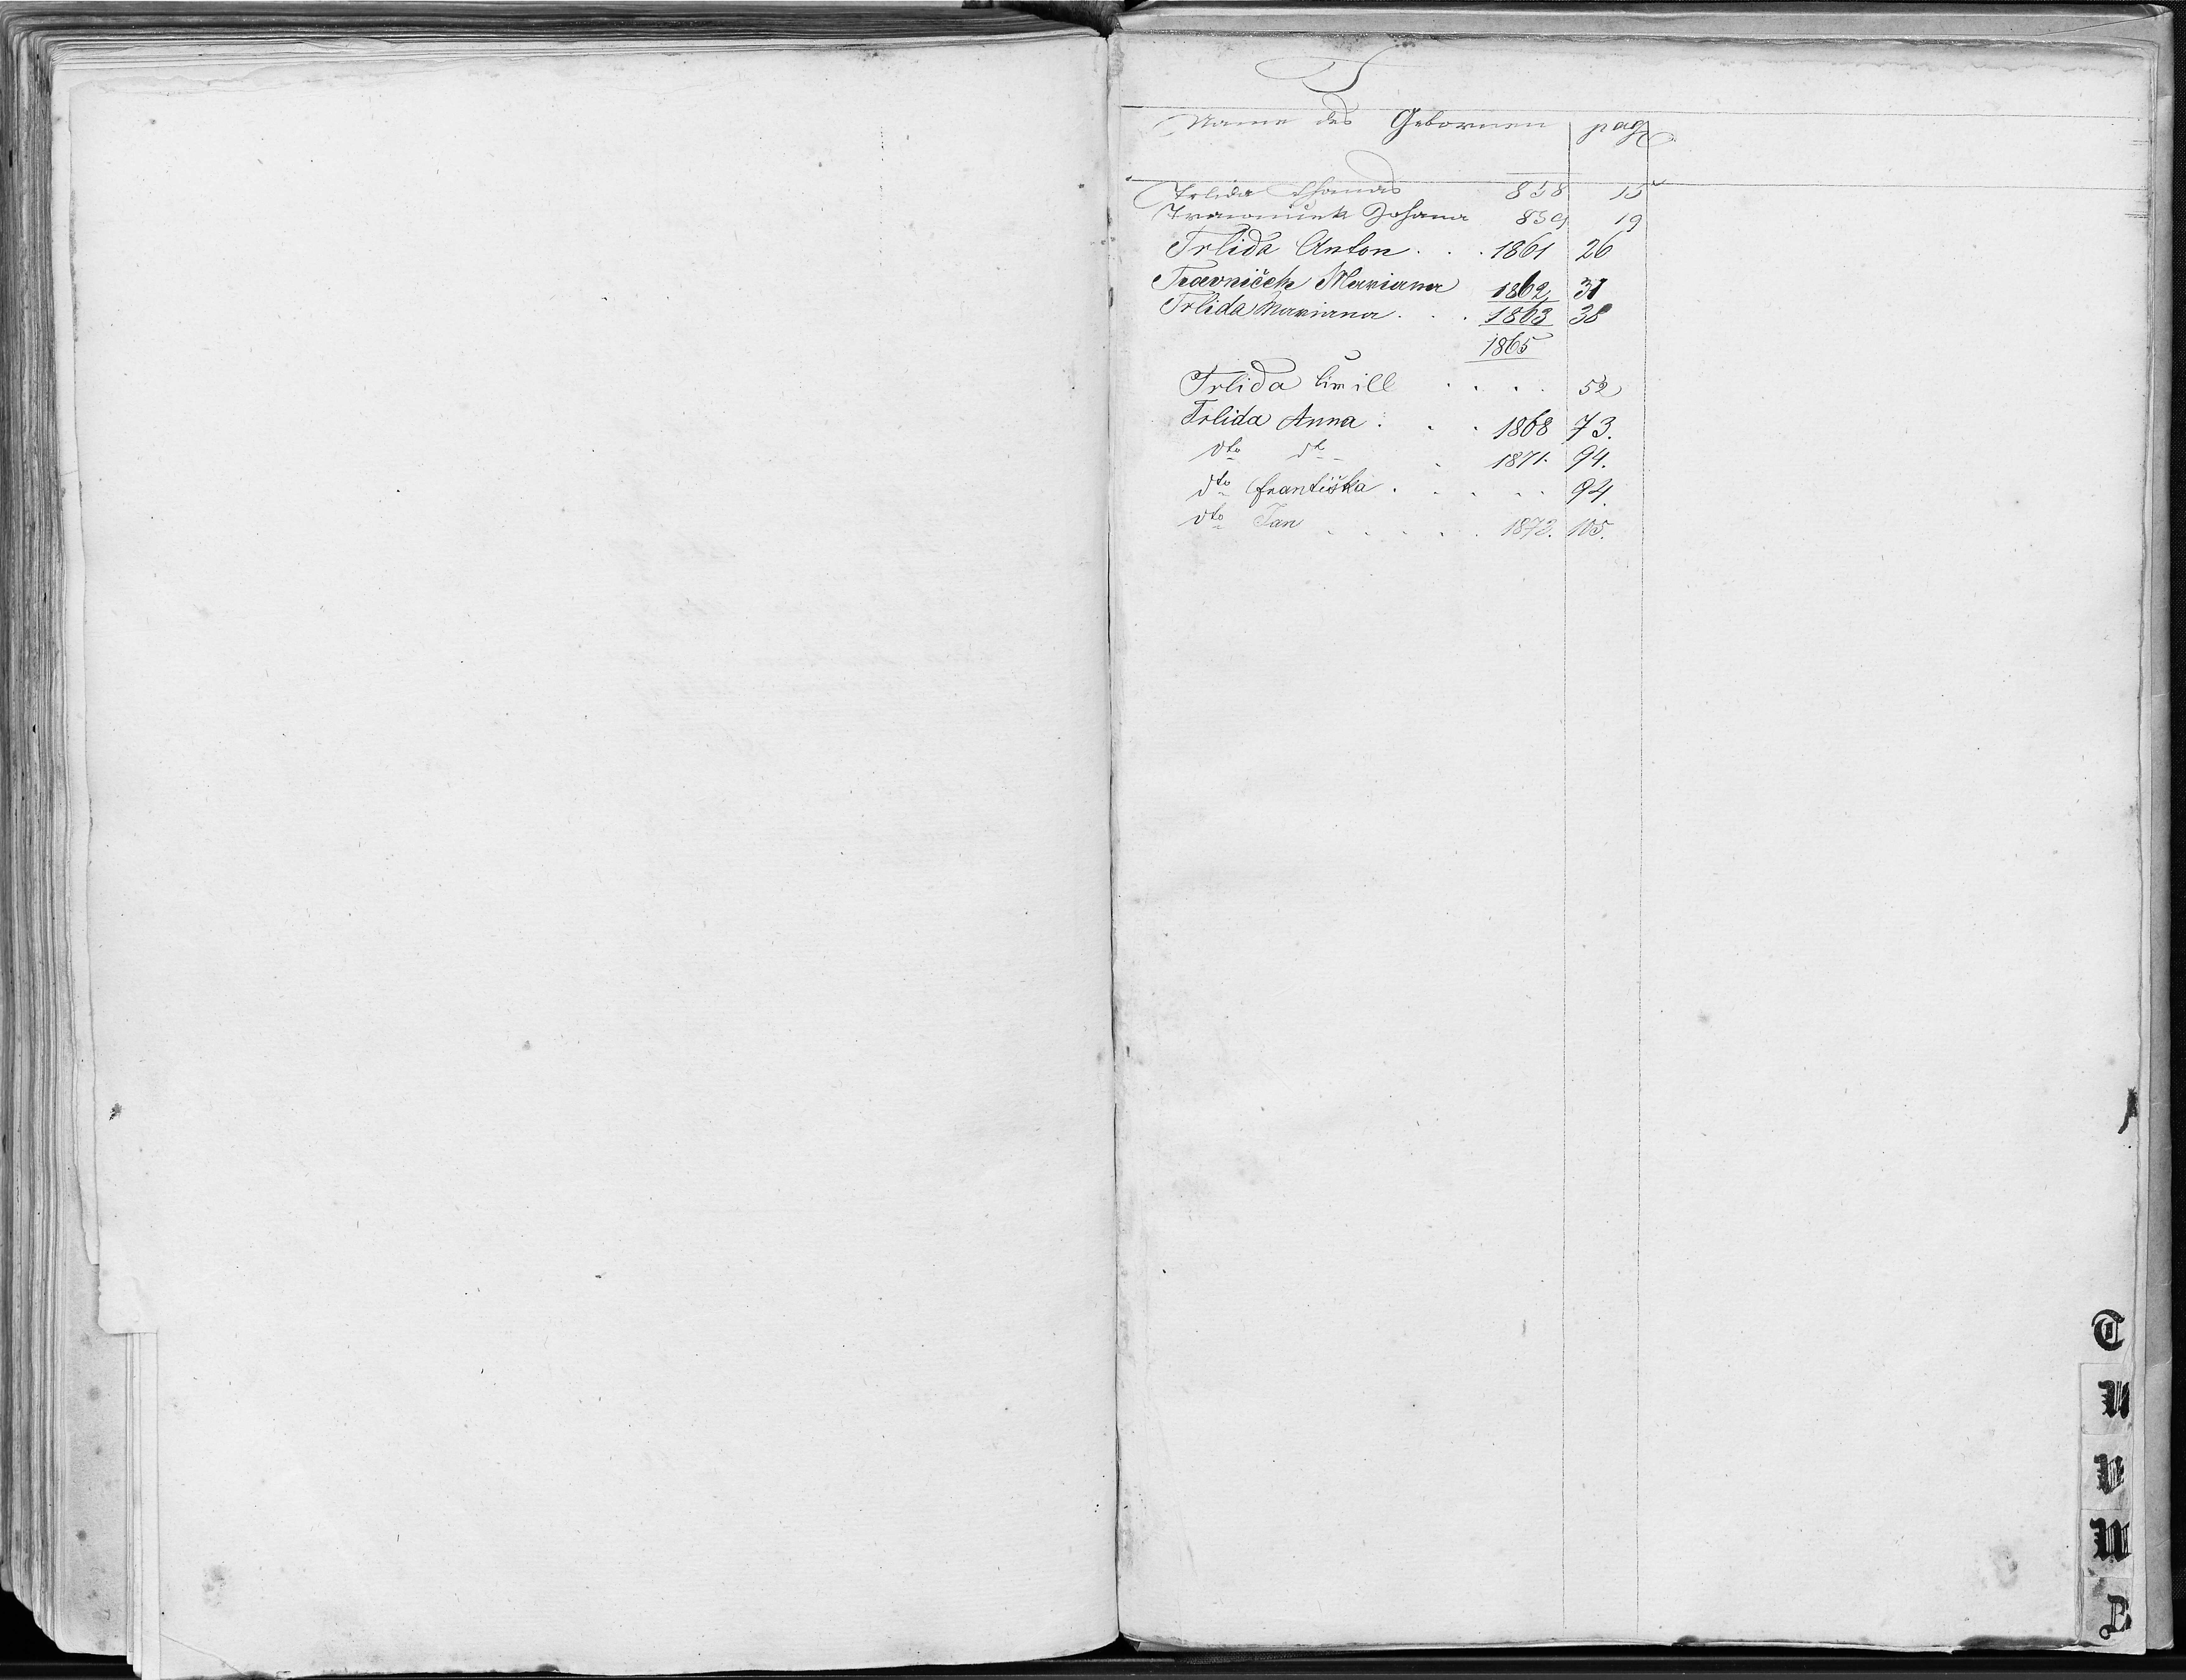 T
Name des Gebornen pag
Trlida Thomas 858 15
Travnicek Johana 859 19
Trlida Anton . . . 1861 26
Travniček Mariana 1862 31
Trlida Mariana . . . 1863 38
1865
Trlida Cirill . . . . 52
Trlida Anna . . . 1868 73.
dto dto . 1871. 94.
dto Františka . . . . . 94.
dto Jan . . . . . . 105.
T
U
V
W
Z